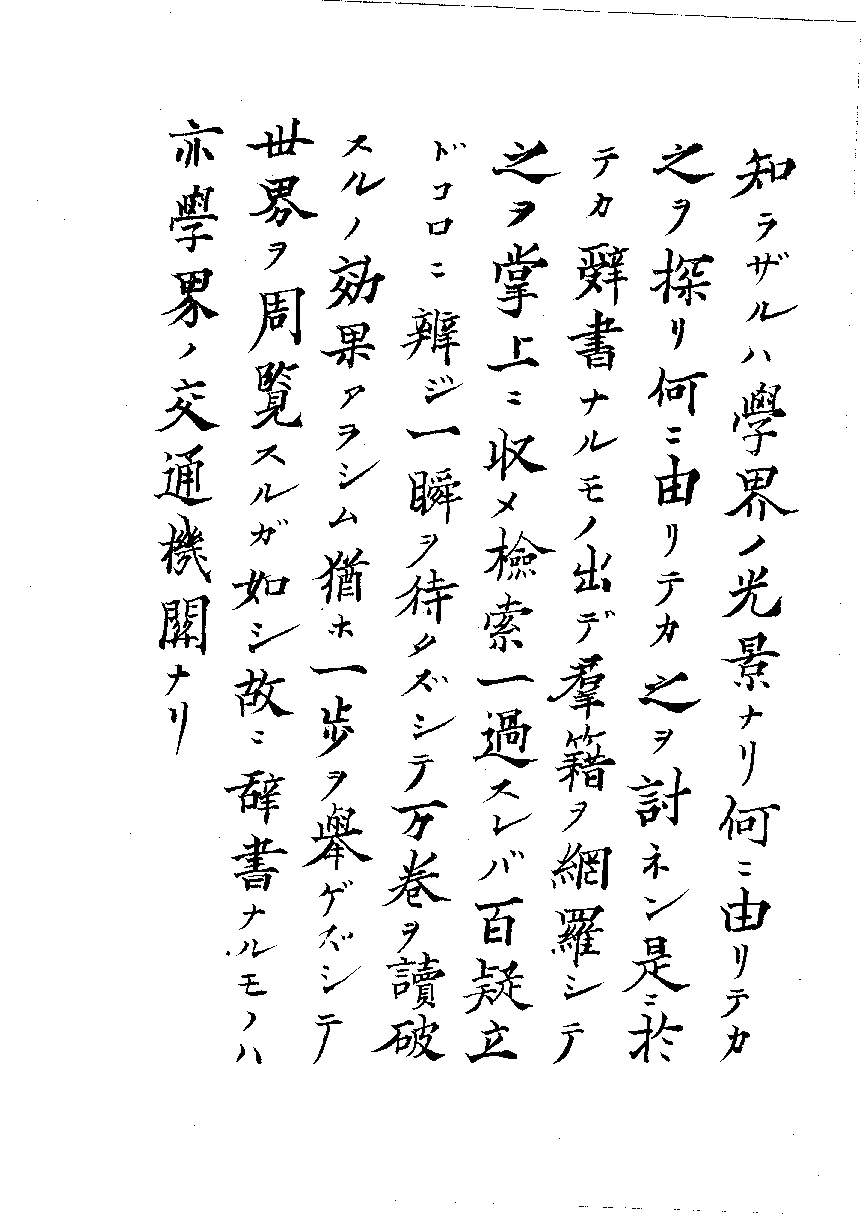 知ラザルハ學界ノ光景ナリ何ニ由リテカ
之ヲ探リ何ニ由リテカ之ヲ討ネン是ニ於
テカ辭書ナルモノ出デ羣籍ヲ網羅シテ
之ヲ掌上ニ收メ檢索一過スレバ百疑立
ドコロニ辨ジ一瞬ヲ待タズシテ万卷ヲ讀破
スルノ効果アラシム猶ホ一歩ヲ擧ゲズシテ
世界ヲ周覧スルガ如シ故ニ辭書ナルモノハ
亦學界ノ交通機關ナリ